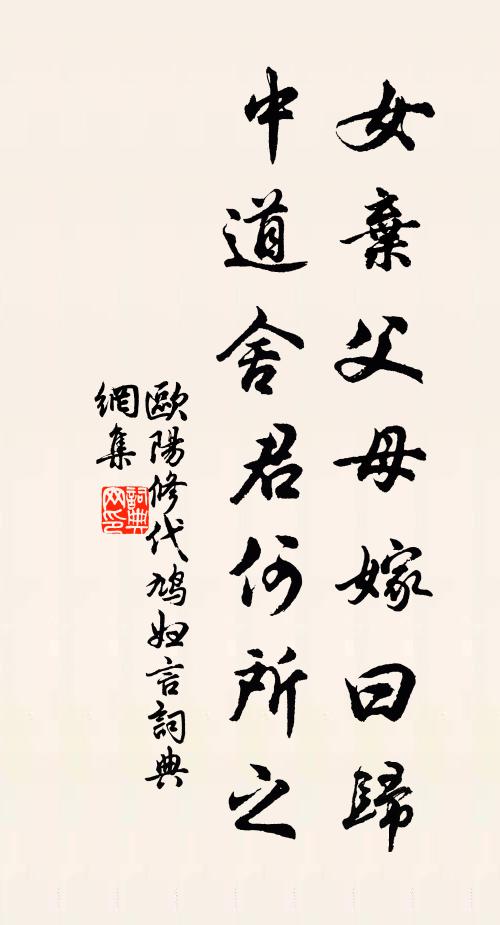 女棄父母嫁曰歸
中道舍君何所之
歐陽修代鳩婦言詞典
網集
詞典
网印